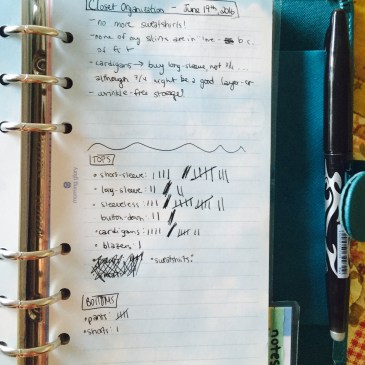 Closet Organization - June 19th, 2016
- no more sweatshirts!
- none of my skirts are in
- cardigans → buy long-sleeve, not 3/4 ...
although 3/4 might be a good layer
- wrinkle-free storage!
TOPS
• short-sleeve:
• long-sleeve:
• sleeveless:
button-down:
• cardigans:
• blazers:
• sweatshirts:
BOTTOMS
• pants:
• shorts:
notes